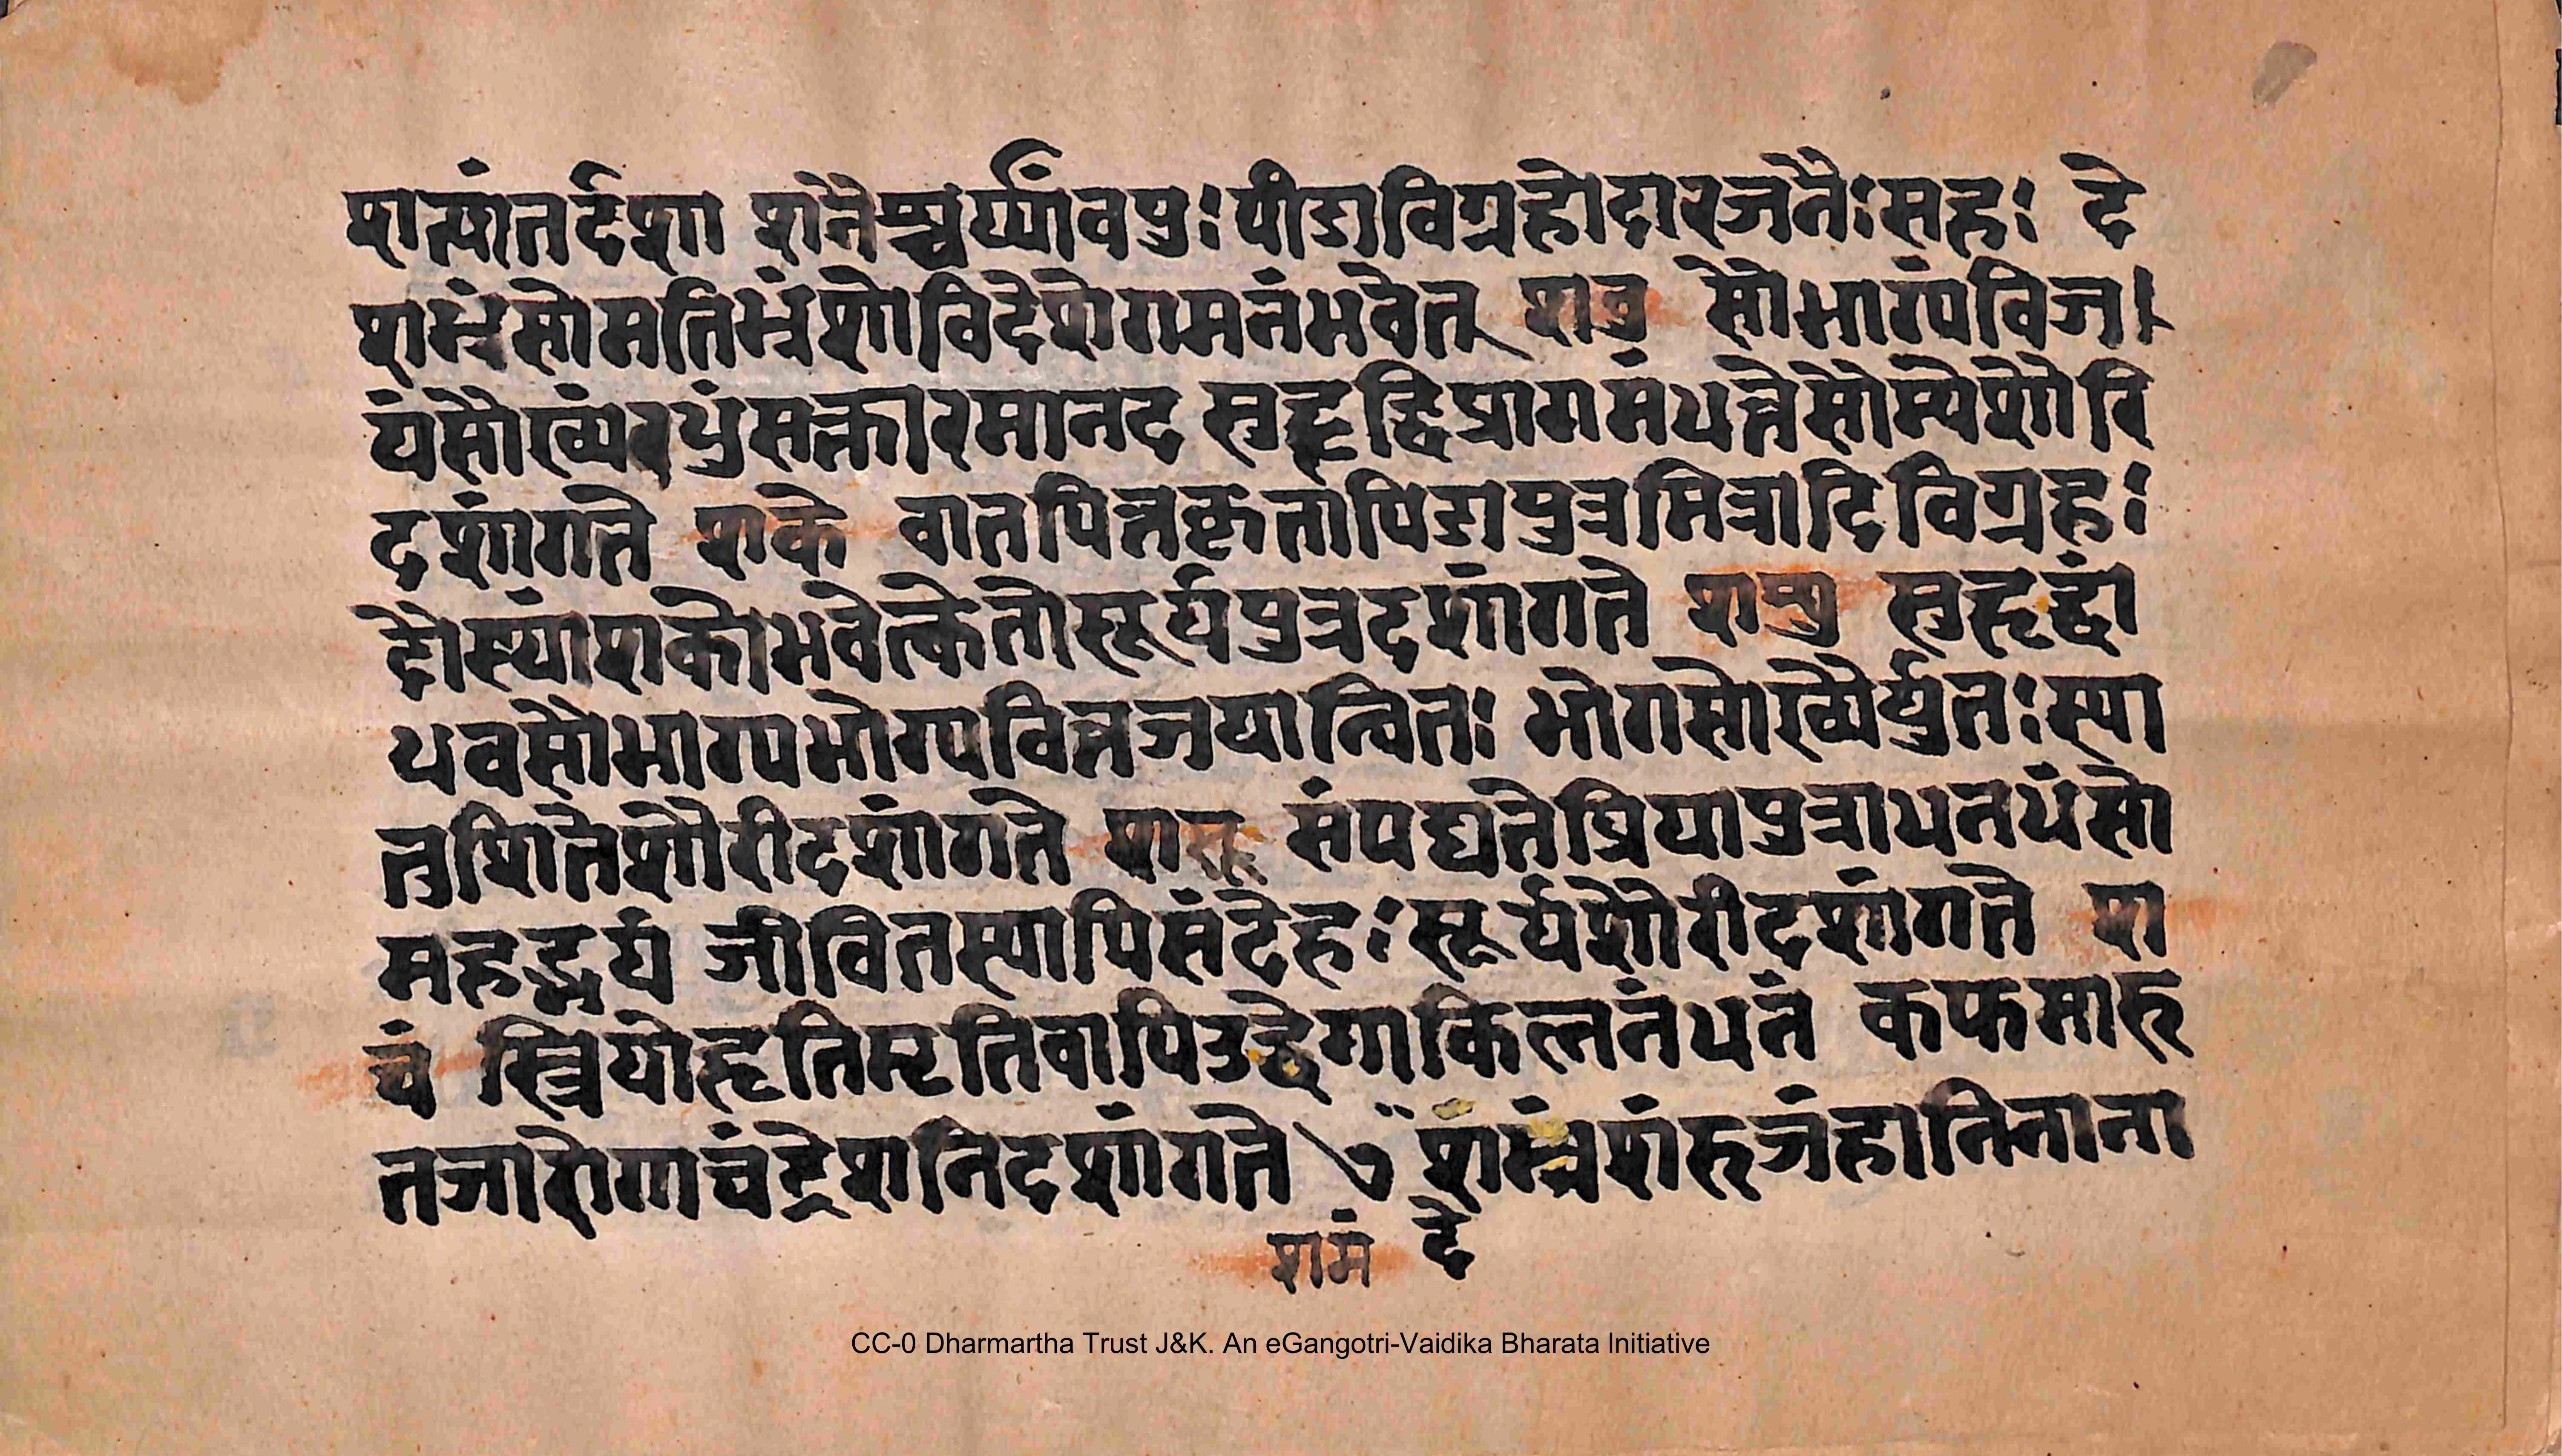 शन्यांतर्दशा शनैश्चर्य्यांवपुः पीडाविग्रहोदारजतैः सहः दे
शभ्रंसोमतिभ्रंशोविदेशेगमनंभवेत् शबु सौभाग्यविज।
यंसौख्यंवपुंसत्कारमानद सुहृद्धिप्रागमंधत्तेसौम्येशौरि
दशांगते शके वातपित्तकृतापिडापुत्रमित्रादिविग्रहः
देोस्यांशकोभवेत्केतौसूर्यपुत्रदशांगते शशु सुहृद्वां
धवसौभाग्यभोग्यवित्तजयान्वितः भोगसौख्यैर्युतःस्या
तुशितेशौरीदशांगते शसू संपद्यतेप्रियापुत्राधनधंसो
महद्भयं जीवितस्यापिसंदेहः सूर्यशौरीदशांगते श
चं स्त्रियोहृतिमृतिवापिउद्वेगाकित्ननंधनं कफमारु
तजारोगाचंद्रेशनिदशांगते ७ शस्त्रशंरुजंहानिनाना
शमं दे
CC-0 Dharmartha Trust J&K. An eGangotri-Vaidika Bharata Initiative